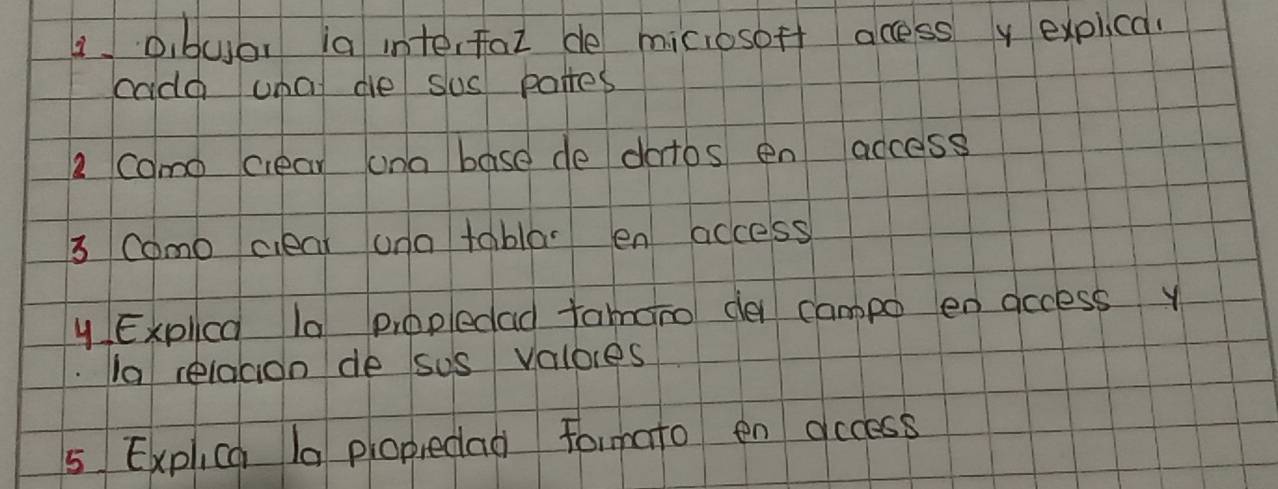 1. Dibujar la interfaz de microsoft access y explicar
cada una de sus partes
2 Como crear una base de datos en access
3 Como crear una tabla en access
4. Explica la propiedad tamaño del campo en access y
la relacion de sus valores
5 Explica la propiedad formato en access